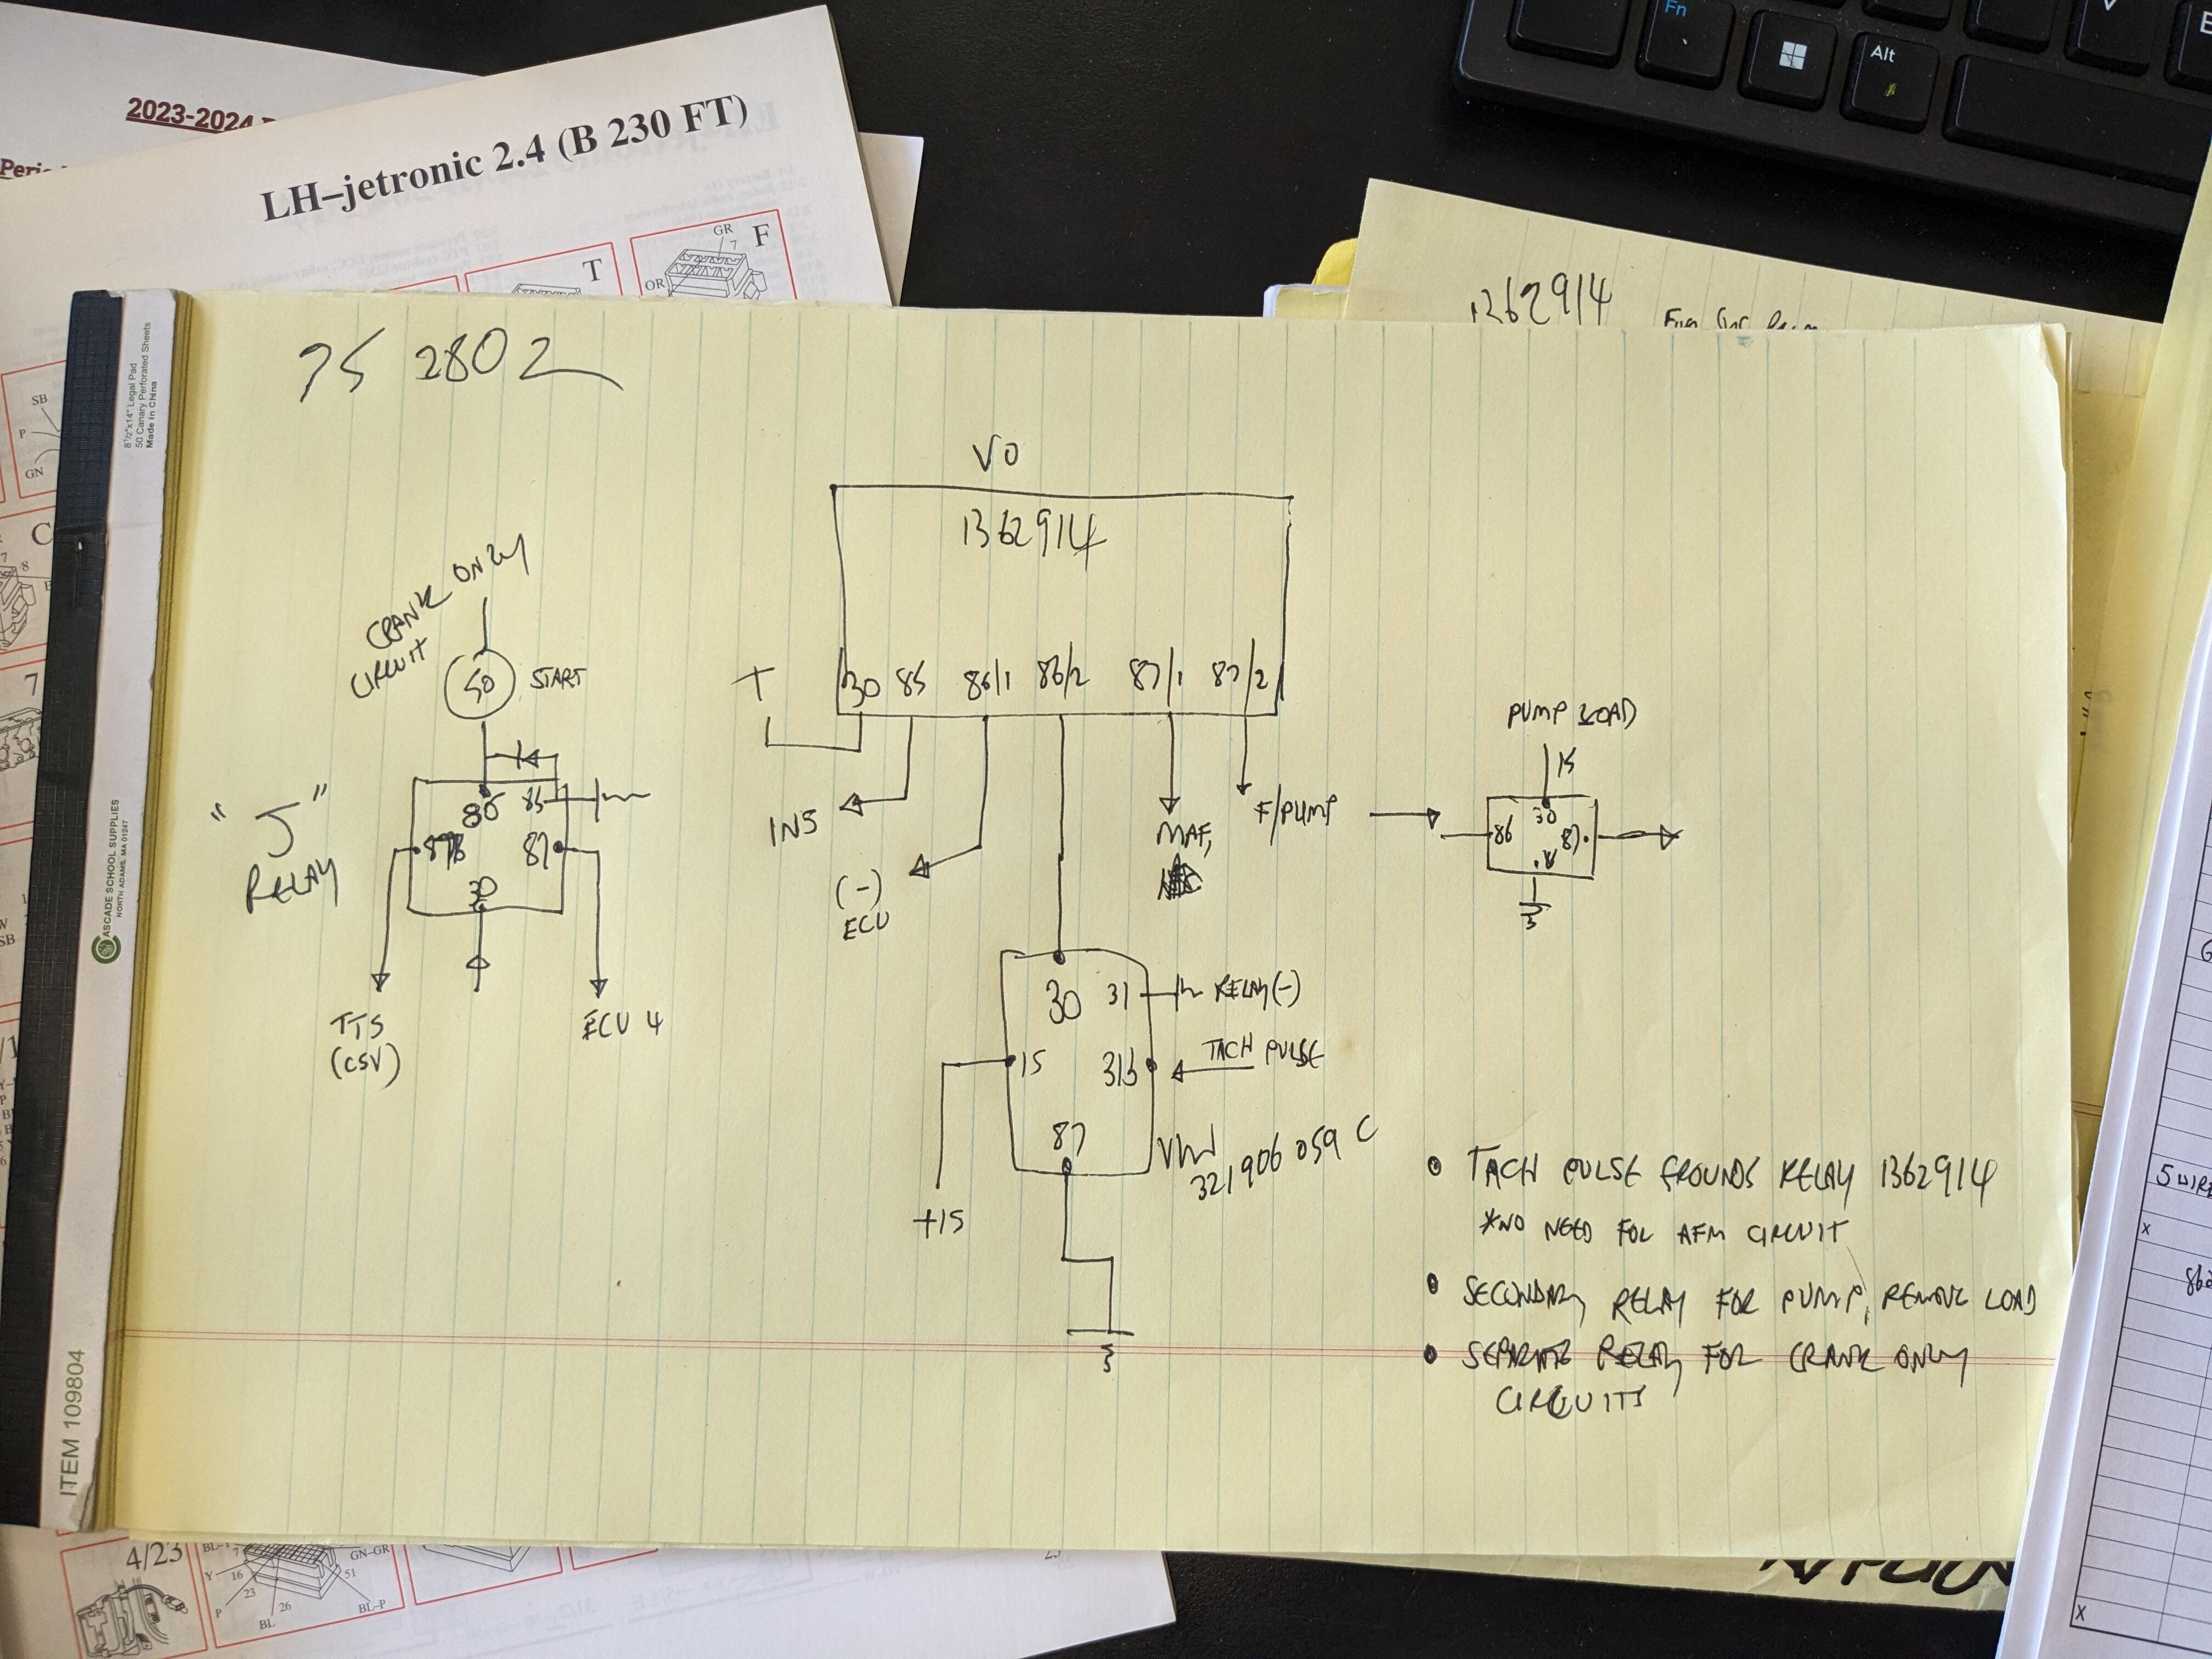 2023-2024
LH–jetronic 2.4 (B 230 FT)
Fn
Alt
GR
7
F
T
OR
SB
P
GN
C
8
7
8½"x14" Legal Pad
50 Canary Perforated Sheets
Made in China
CASCADE SCHOOL SUPPLIES
NORTH ADAMS, MA 01247
ITEM 109804
1362914
75 2802
VO
1362914
30 85 86/1 86/2 87/1 87/2
+
INS
(-)
ECU
MAF,
F/PUMP
CRANK ONLY
CIRCUIT
50 START
"J"
RELAY
86 85
87
30
TTS
(CSV)
ECU 4
PUMP LOAD
15
30
86 87
30 31 RELAY(-)
15 31b TACH PULSE
87
VW
321906059 C
+15
• TACH PULSE GROUNDS RELAY 1362914
*NO NEED FOR AFM CIRCUIT
• SECONDARY RELAY FOR PUMP, REMOVE LOAD
• SEPARATE RELAY FOR CRANK ONLY
CIRCUITS
5 WIRE
x
X
4/23
7
Y 16
P 23
BL 26
GN-GR
51
BL-P